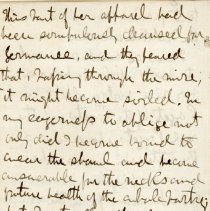 This part of her apparel had
been scrupulously cleansed for
Germanee, and they feared
that, rafing through the mire,
it might become soiled. In
my eagerness to oblige not
only did I become bound to
wear the shawl and become
answerable for the necks and
future health of the whole party,
but